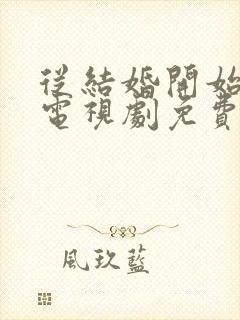 從結婚開始
電視劇免費
風玖藍